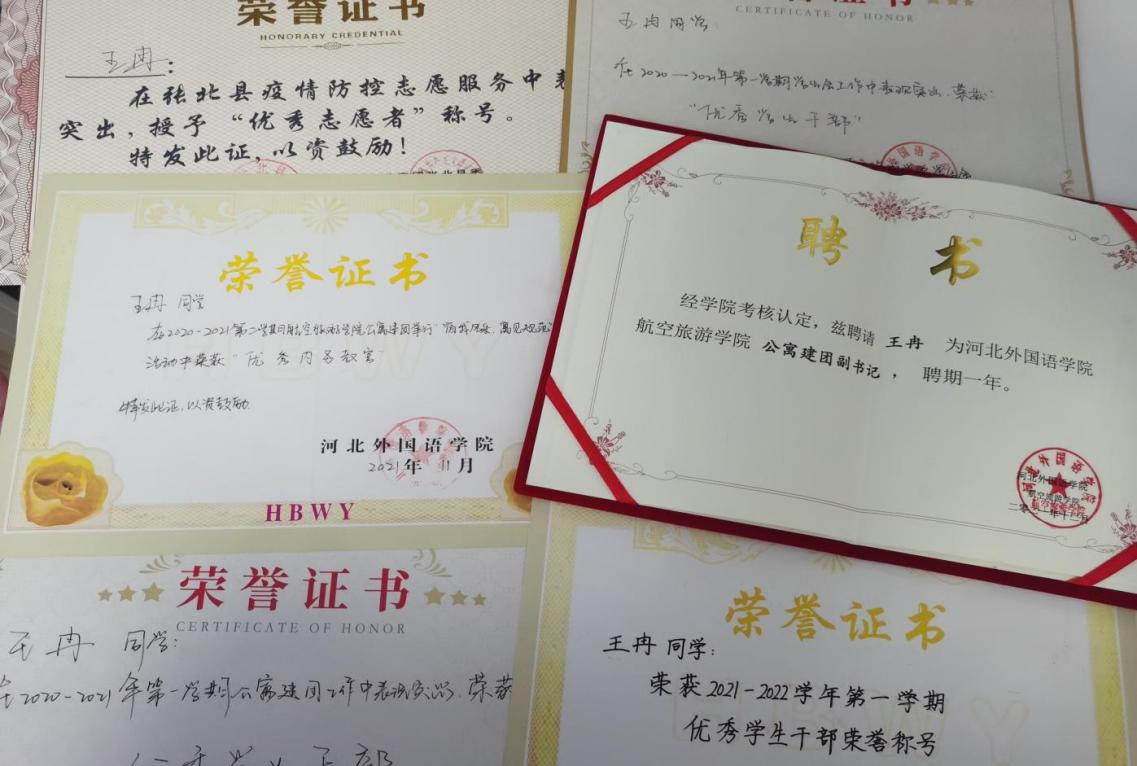 荣誉证书
HONORARY CREDENTIAL
王冉：
在张北县疫情防控志愿服务中表
突出，授予“优秀志愿者”称号。
特发此证，以资鼓励！
CERTIFICATE OF HONOR
王冉同学
在2020—2021年第一学期学生会工作中表现突出，荣获
“优秀学生干部”
聘书
经学院考核认定，兹聘请 王冉 为河北外国语学院
航空旅游学院 公寓建团副书记 ，聘期一年。
河北外国语学院
航空旅游学院
荣誉证书
王冉 同学
在2020-2021第二学期航空旅游学院公寓建团举行
活动中荣获“优秀内务教室”
特发此证，以资鼓励。
河北外国语学院
2021年 11月
HBWY
荣誉证书
CERTIFICATE OF HONOR
王冉 同学：
在2020-2021年第一学期公寓建团工作中表现突出，荣获
荣誉证书
王冉 同学：
荣获2021-2022学年第一学期
优秀学生干部荣誉称号